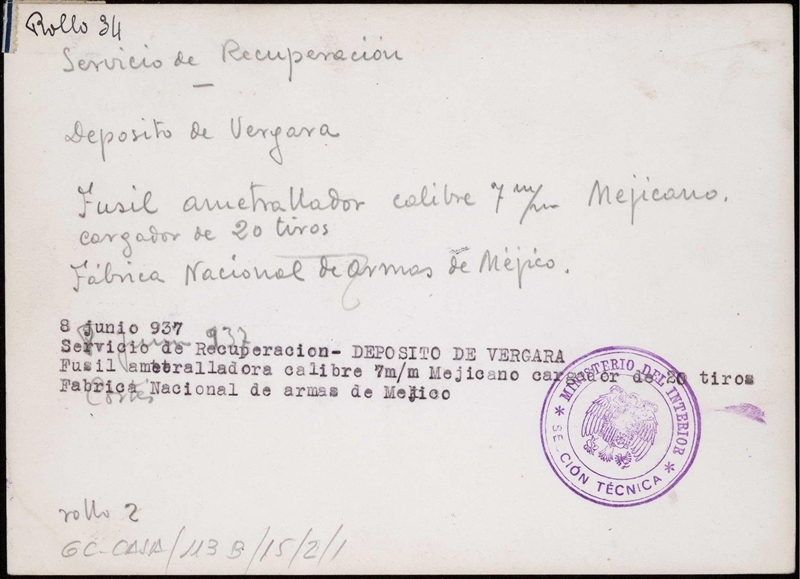 Rollo 34
Servicio de Recuperación
Deposito de Vergara
Fusil ametrallador calibre 7 m/m Mejicano.
cargador de 20 tiros
Fábrica Nacional de armas de Méjico.
8 junio 937
8 junio 937
Servicio de Recuperacion- DEPOSITO DE VERGARA
Fusil ametralladora calibre 7m/m Mejicano cargador de 20 tiros
Fabrica Nacional de armas de Mejico
Cortés
* MINISTERIO DEL INTERIOR *
SECCIÓN TÉCNICA
rollo 2
GC-CAJA/113 B/15/2/1